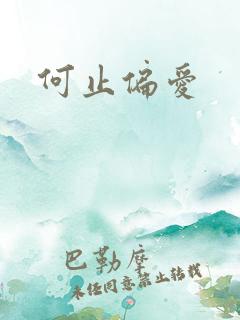 何止偏愛
巴勒摩
未经同意禁止转载